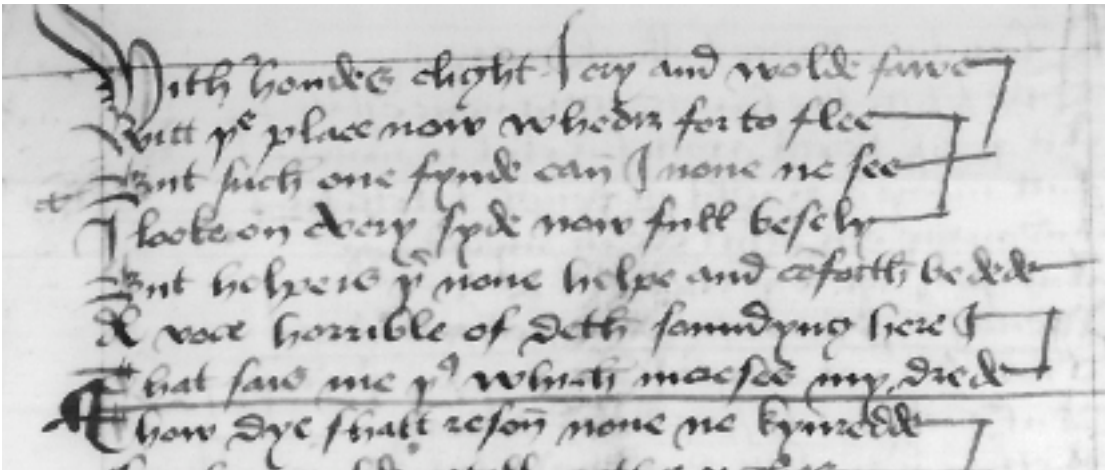 With hondes clight I cry and wolde fawe
Witt þe place now whedir for to flee
But such one fynde can I none ne see
I looke on every syde now full besely
But helpe is þr none helpe and cōforth be dede
A voce horrible of deth sowndyng here I
That sais me þs which incresceˢ my drede
Thow dye shall reson none ne kynredde